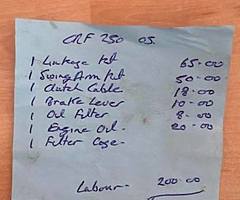 CRF 250 05.
1 Linkage Kit 65-00
1 Swing Arm Kit 50-00
1 Clutch Cable 18-00
1 Brake Lever 10-00
1 Oil Filter 8-00
1 Engine Oil- 20-00
1 Filter Cage-
Labour- 200-00